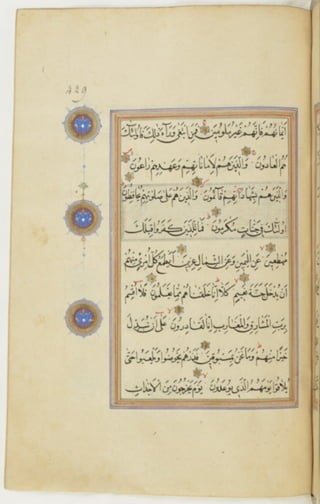 429
اَيْمَانُهُمْ فَاِنَّهُمْ غَيْرُ مَلُومِينَ فَمَنِ ابْتَغٰى وَرَآءَ ذٰلِكَ فَاُولٰئِكَ
هُمُ الْعَادُونَ وَالَّذِينَ هُمْ لِاَمَانَاتِهِمْ وَعَهْدِهِمْ رَاعُونَ
وَالَّذِينَ هُمْ بِشَهَادَاتِهِمْ قَآئِمُونَ وَالَّذِينَ هُمْ عَلٰى صَلَاتِهِمْ يُحَافِظُونَ
اُولٰئِكَ فِي جَنَّاتٍ مُكْرَمُونَ فَمَالِ الَّذِينَ كَفَرُوا قِبَلَكَ
مُهْطِعِينَ عَنِ الْيَمِينِ وَعَنِ الشِّمَالِ عِزِينَ اَيَطْمَعُ كُلُّ امْرِئٍ مِنْهُمْ
اَنْ يُدْخَلَ جَنَّةَ نَعِيمٍ كَلَّا اِنَّا خَلَقْنَاهُمْ مِمَّا يَعْلَمُونَ فَلَا اُقْسِمُ
بِرَبِّ الْمَشَارِقِ وَالْمَغَارِبِ اِنَّا لَقَادِرُونَ عَلٰى اَنْ نُبَدِّلَ
خَيْرًا مِنْهُمْ وَمَا نَحْنُ بِمَسْبُوقِينَ فَذَرْهُمْ يَخُوضُوا وَيَلْعَبُوا حَتّٰى
يُلَاقُوا يَوْمَهُمُ الَّذِي يُوعَدُونَ يَوْمَ يَخْرُجُونَ مِنَ الْاَجْدَاثِ